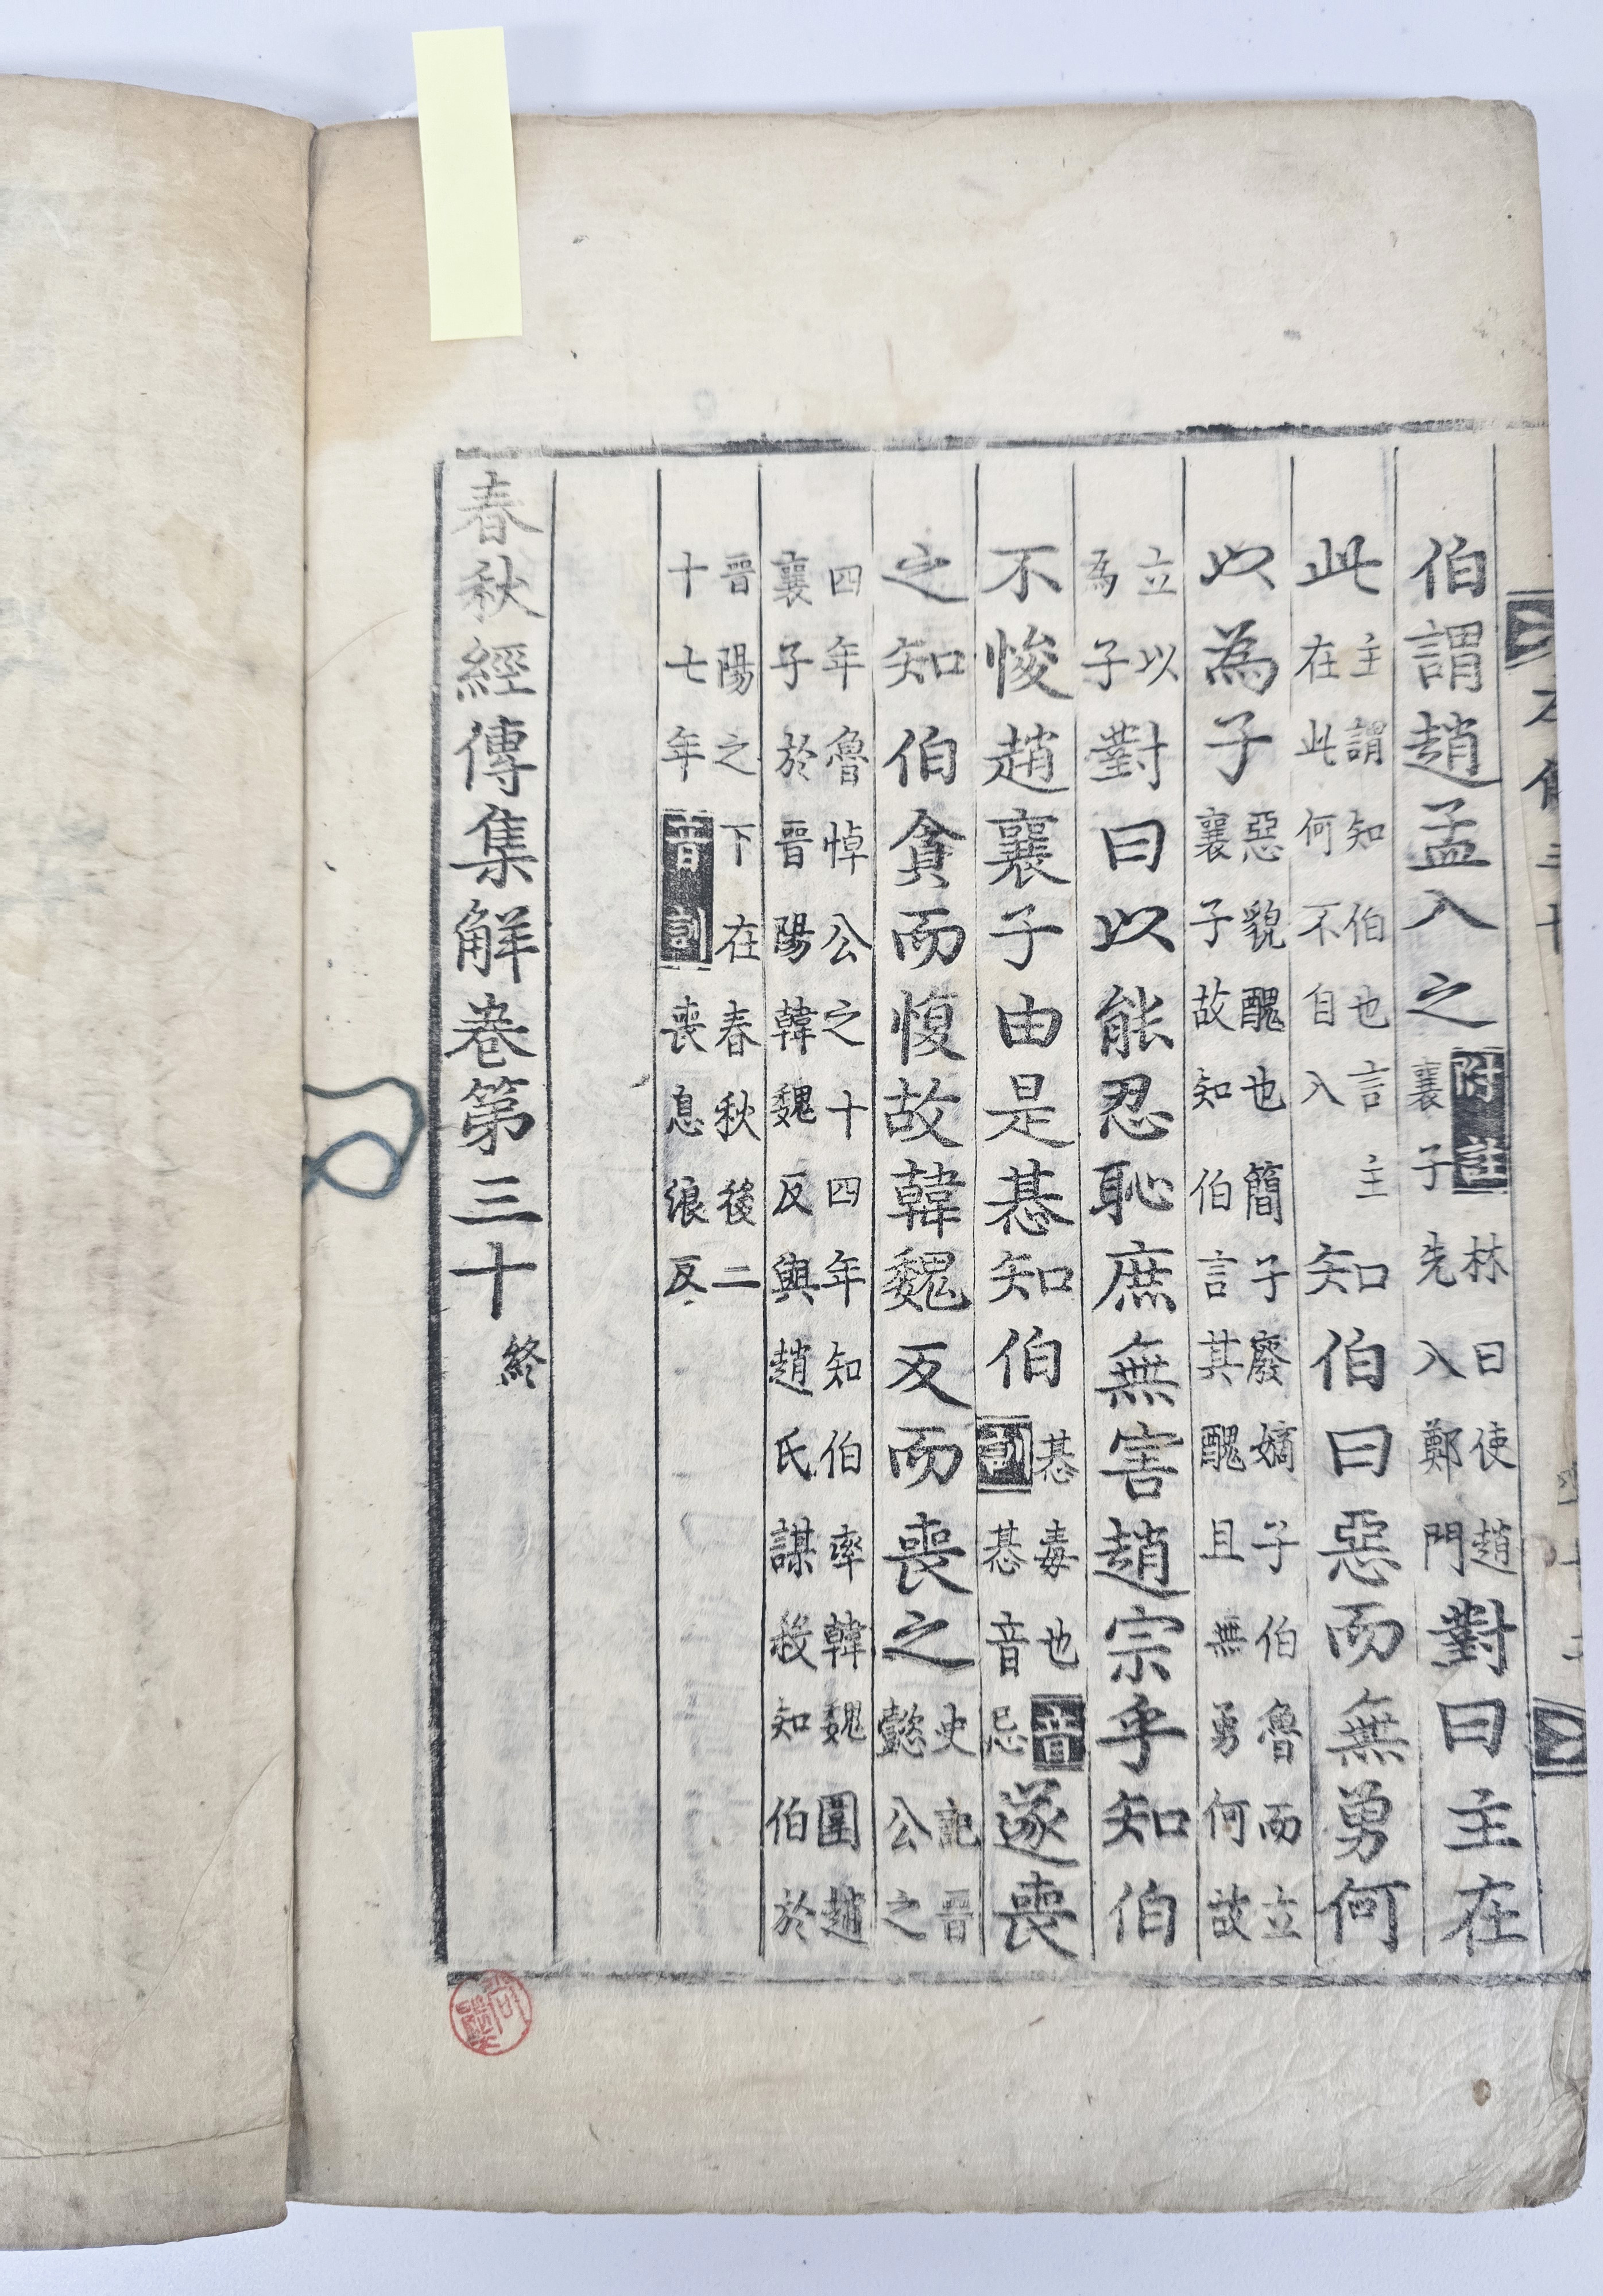 伯謂趙孟入之附註林曰使趙襄子先入鄭門對曰主在
此主謂知伯也言主在此何不自入知伯曰惡而無勇何
以為子惡貌醜也簡子廢嫡子伯魯而立襄子故知伯言其醜且無勇何故
立以為子對曰以能忍恥庶無害趙宗乎知伯
不悛趙襄子由是惎知伯惎毒也音訓惎音忌遂喪
之知伯貪而愎故韓魏反而喪之史記晉懿公之
四年魯悼公之十四年知伯率韓魏圍趙襄子於晉陽韓魏反與趙氏謀殺知伯於
晉陽之下在春秋後二十七年音訓喪息浪反
春秋經傳集解卷第三十終